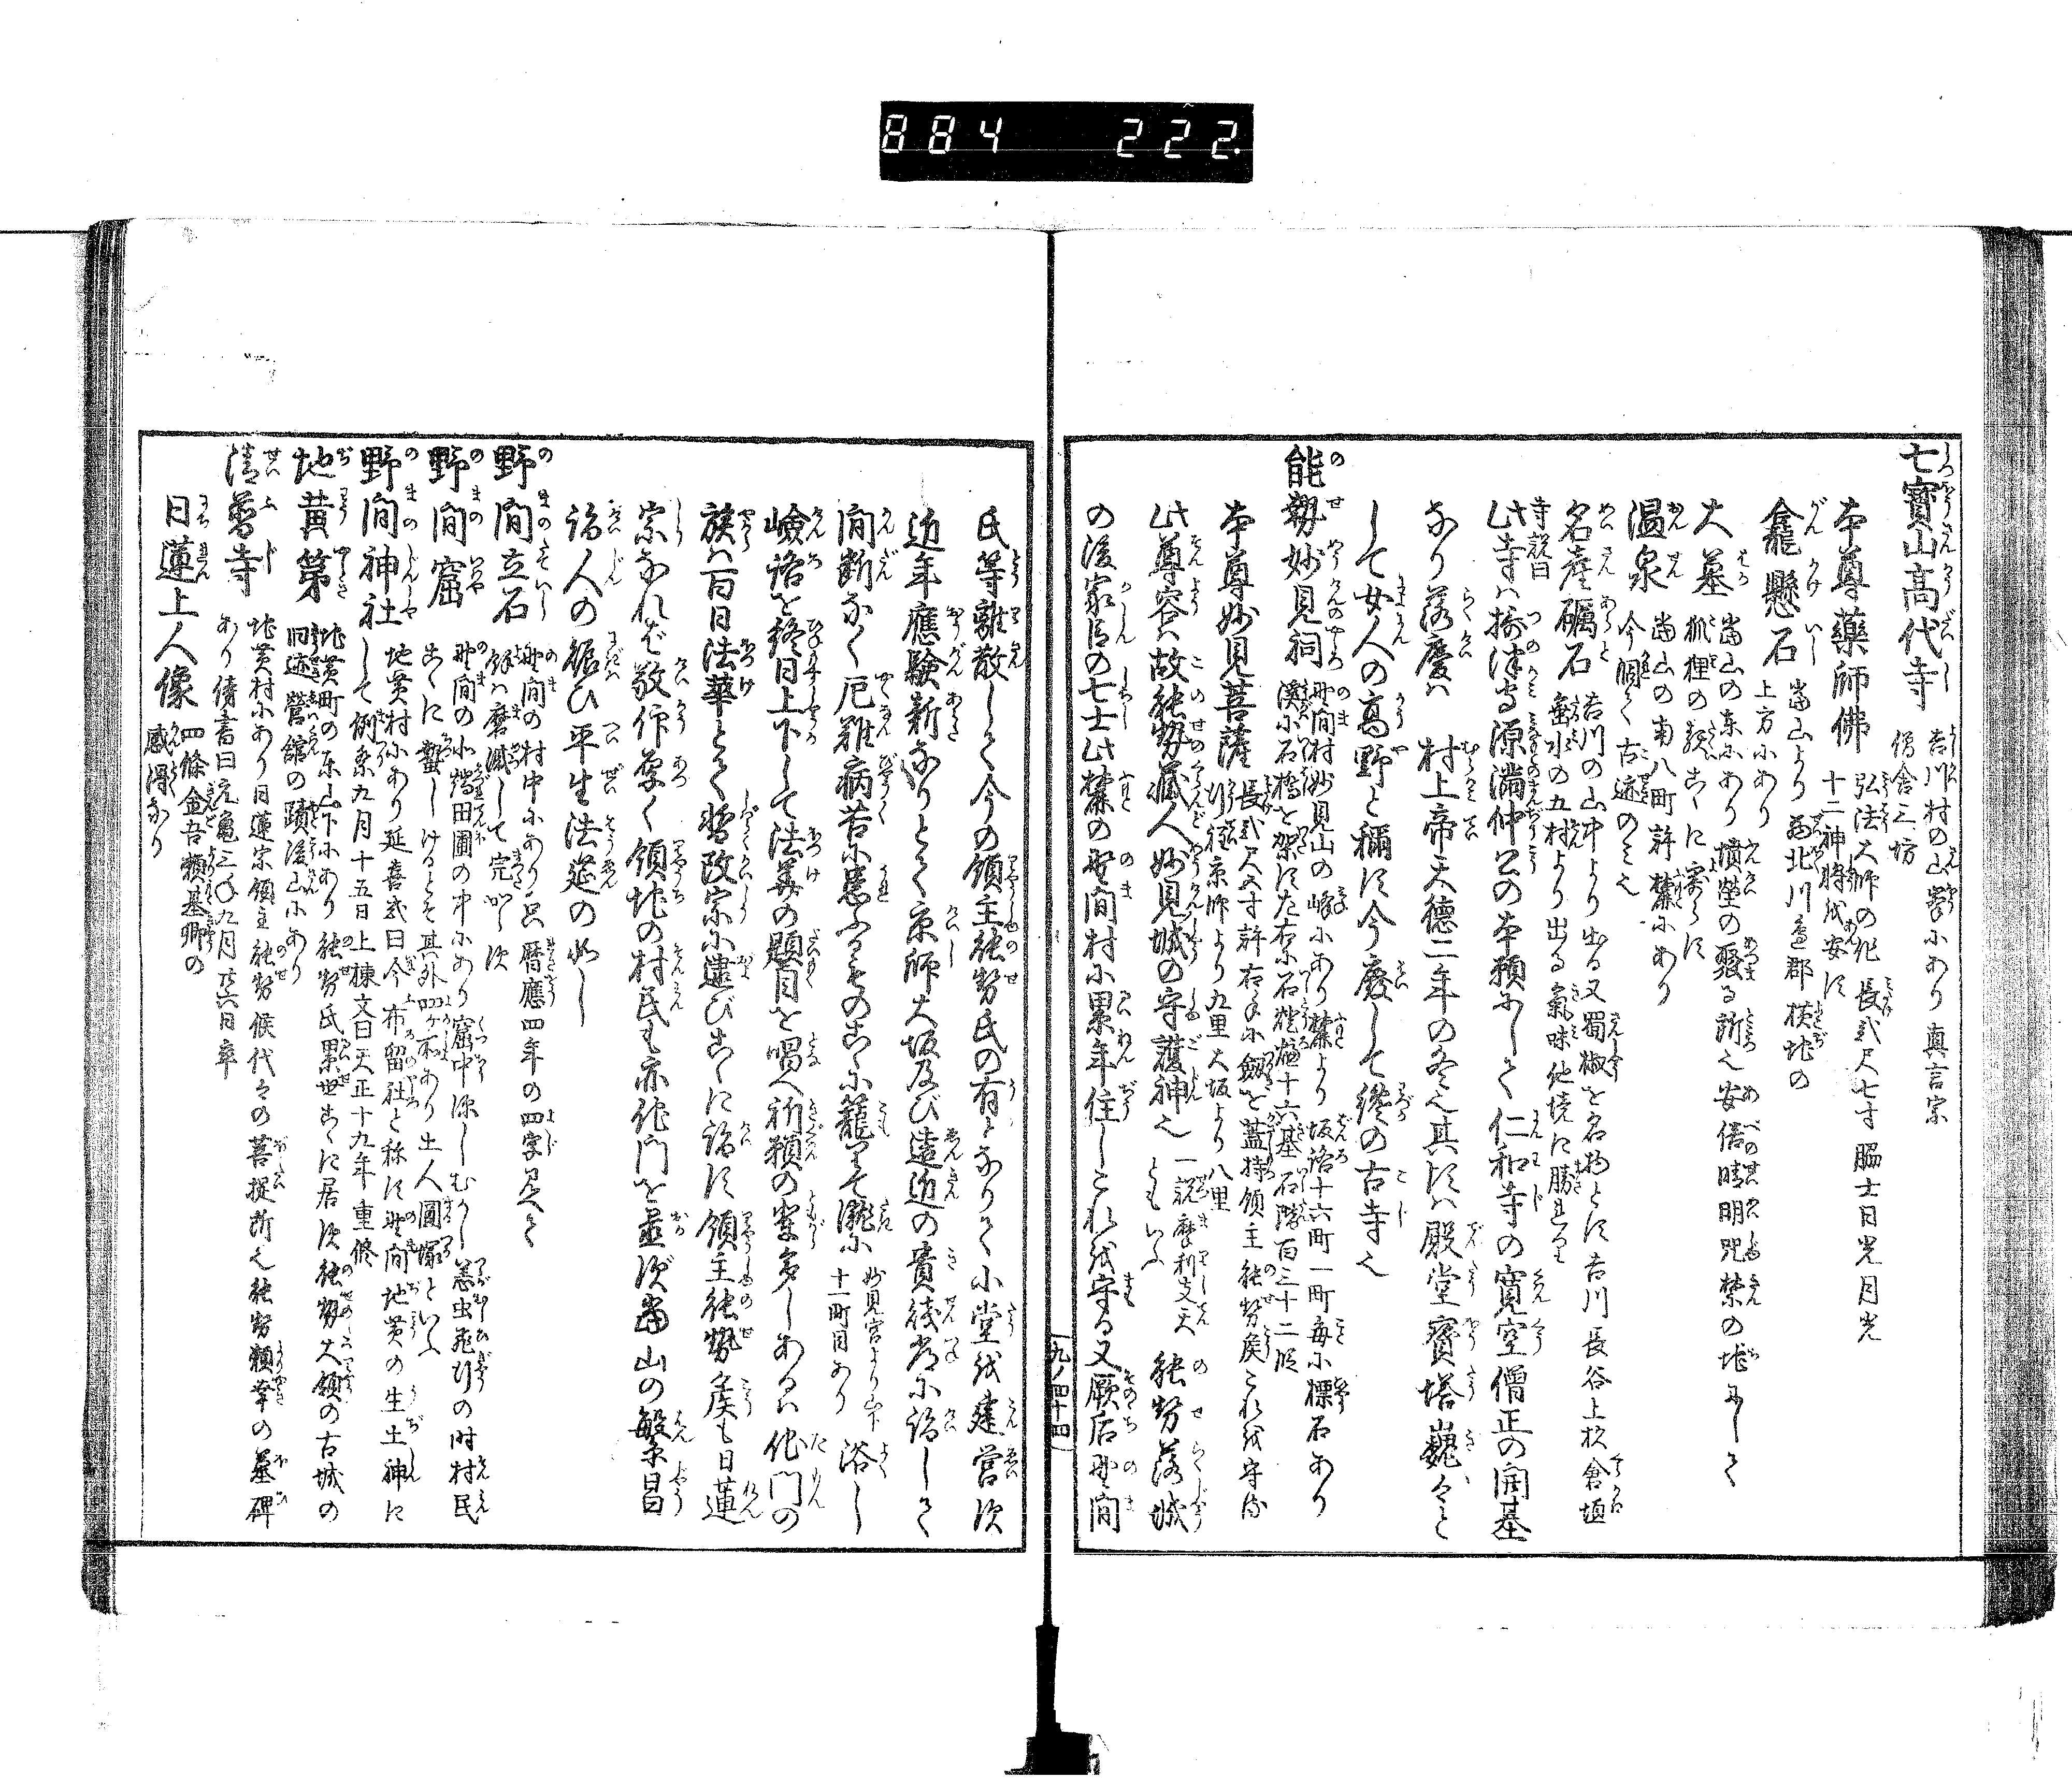 884 222
七寳山高代寺
吉川村の山嶺にあり真言宗
僧舎三坊
本尊藥師佛
弘法大師の作長弐尺七寸脇士日光月光
十二神將を安ず
龕懸石
當山より為北川邉郡横地の
上方にあり
大墓
當山の東にあり墳塋の發る所也安倍晴明咒禁の地にして
狐狸の類こゝに寄らず
温泉
當山の南八町許麓にあり
今涸て古迹のみ也
名産礪石
吉川の山中より出る又蜀椒を名物とす吉川長谷上杉倉垣
の五村より出る氣味他境に勝れたり
寺説曰
此寺は摂津守源満仲公の本願にして仁和寺の寛空僧正の開基
なり落慶は村上帝天徳二年の冬也其頃は殿堂寳塔巍々と
して女人の高野と稱す今廢して纔の古寺也
能勢妙見祠
野間村妙見山の嶺にあり麓より坂路十六町一町毎に標石あり
溪に石橋を架す左右に石燈爐十六基石階百三十二級
本尊妙見菩薩
長弐尺五寸許右手に劔を蓋持領主能勢矦これを守る
行程京師より九里大坂より八里
此尊容は故能勢蔵人妙見城の守護神也一説摩利支天ともいふ能勢落城
の後家臣の七士此麓の野間村に累年住しこれを守る又厥后野間
一九ノ四十四
氏等離散して今の領主能勢氏の有となりて小堂を建営す
近年應験新なりとて京師大坂及び遠近の貴賎常に詣して
間断なく厄難病苦に患ふるものこゝに籠りて瀧に妙見宮より山下十一町目あり浴し
嶮路を終日上下して法華の題目を唱へ祈願の輩多しあるは他門の
族は百日法華とて暫改宗に逮びこゝに詣す領主能勢矦も日蓮
宗なれば敬信厚く領地の村民も亦他門を並ず當山の繁昌
詣人の賑ひ平生法莚の如し
野間立石
野間の村中にあり只暦應四年の四字見へて
餘は磨滅して完からず
野間窟
野間の小燔田圃の中にあり窟中深しむかし恙虫飛行の时村民
こゝに蟄しけるとぞ其外四ヶ所あり土人圓塚といふ
野間神社
地黄村にあり延喜式曰今布留社と称す野間地黄の生土神に
して例祭九月十五日上棟文曰天正十九年重修
地黄第
地黄町の東山下にあり能勢氏累世こゝに居す能勢大領の古城の
旧迹營舘の蹟後山にあり
清普寺
地黄村にあり日蓮宗領主能勢候代々の菩提所也能勢頼幸の墓碑
あり傍書曰元亀三年九月廿六日卒
日蓮上人像
四條金吾頼基卿の
感得なり